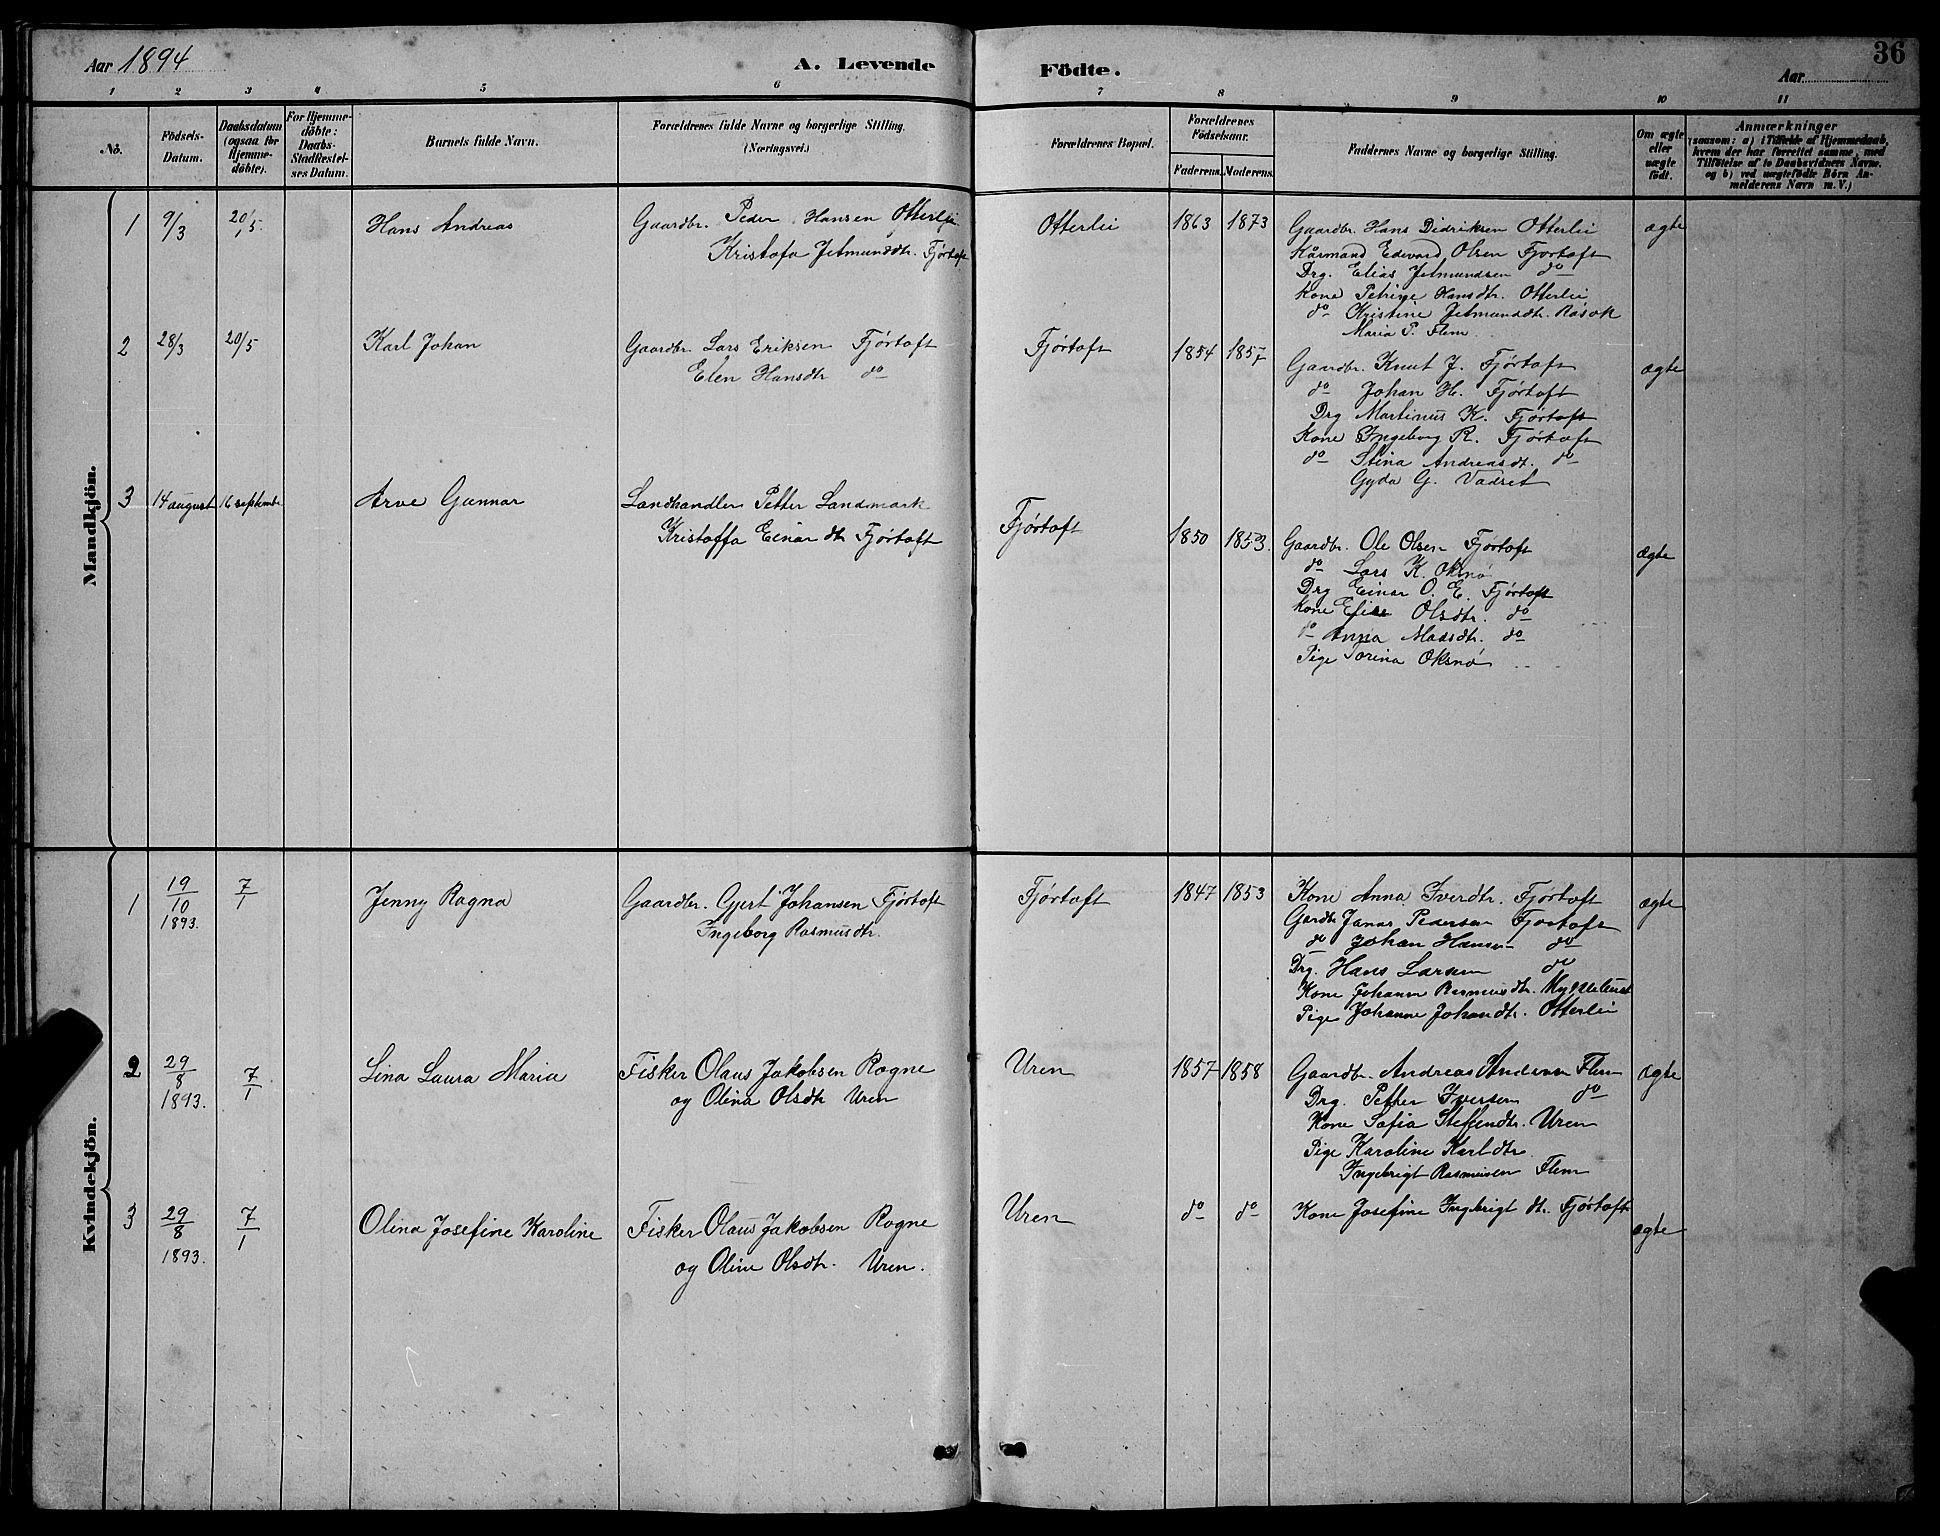 Aar 1894
A. Levende Födte.
36
Aar
1 2 3 4 5 6 7 8 9 10 11
No.
Födsels-
Datum.
Daabsdatum
(ogsaa for
Hjemme-
döbte).
For Hjemme-
döbte:
Daabs-
Stadfæstel-
ses Datum.
Barnets fulde Navn.
Forældrenes fulde Navne og borgerlige Stilling.
(Næringsvei.)
Forældrenes Bopæl.
Forældrenes
Födselsaar.
Faderens. Moderens.
Faddernes Navne og borgerlige Stilling.
Om ægte
eller
uægte
födt.
Anmærkninger
(saasom: a) i Tilfælde af Hjemmedaab,
hvem der har forrettet samme, med
Tilföielse af to Daabsvidners Navne,
og b) ved uægtefödte Börn An-
melderens Navn m.V.)
Mandkjön.
1 9/3 20/5. Hans Andreas
Gaardbr. Peder Hansen Otterlei
Kristofa Jetmunddtr. Fjørtoft
Otterlei 1863 1873
Gaardbr. Hans Didriksen Otterlei
Kårmand Edevard Olsen Fjørtoft
Drg. Elias Jetmundsen do
Kone Petrine Hansdtr. Otterlei
do Kristine Jetmunddtr. Råsok
Maria P. Flem
ægte
2 28/3 20/5 Karl Johan
Gaardbr. Lars Eriksen Fjørtoft
Elen Hansdtr do
Fjørtoft 1854 1857
Gaardbr. Knut J. Fjørtoft
do Johan H. Fjørtoft
Drg Martinus K. Fjørtoft
Kone Ingeborg R. Fjørtoft
do Stina Andreasdt. do
Gyda G. Vadset
ægte
3 14 august 16 septembr Arve Gunnar
Landhandler Petter Landmark
Kristoffa Einar dtr Fjørtoft
Fjørtoft 1850 1853.
Gaardbr. Ole Olsen Fjørtoft
do Lars K. Oksnø
Drg Einar O. E. Fjørtoft
Kone Olsdtr. do
do Anna Madsdtr. do
Pige Torina Oksnø
ægte
Kvindekjön.
1 19/10 1893. 7/1 Jenny Ragna
Gaardbr. Gjert Johansen Fjørtoft
Ingeborg Rasmusdtr.
Fjørtoft 1847 1853
Kone Anna Iverdtr. Fjørtoft
Gardbr Janas Pedersen Fjørtoft
do Johan Hansen do
Drg. Hans Larsen do
Kone Johanna Rasmusdtr.
Pige Johanne Johandtr. Otterlei
ægte
2 29/8 1893. 7/1 Lina Laura Maria
Fisker Olaus Jakobsen Rogne
og Olina Olsdtr Uren
Uren 1857 1858
Gaardbr. Andreas Andersen Flem
Drg. Petter Iversen do
Kone Sofia Steffendtr. Uren
Pige Karoline Karldtr.
Ingebrigt Rasmusen Flem
ægte
3 29/8 1893. 7/1 Olina Josefine Karoline
Fisker Olaus Jakobsen Rogne
og Oline Olsdtr. Uren.
Uren do do
Kone Josefine Ingebrigt dt. Fjørtoft
ægte